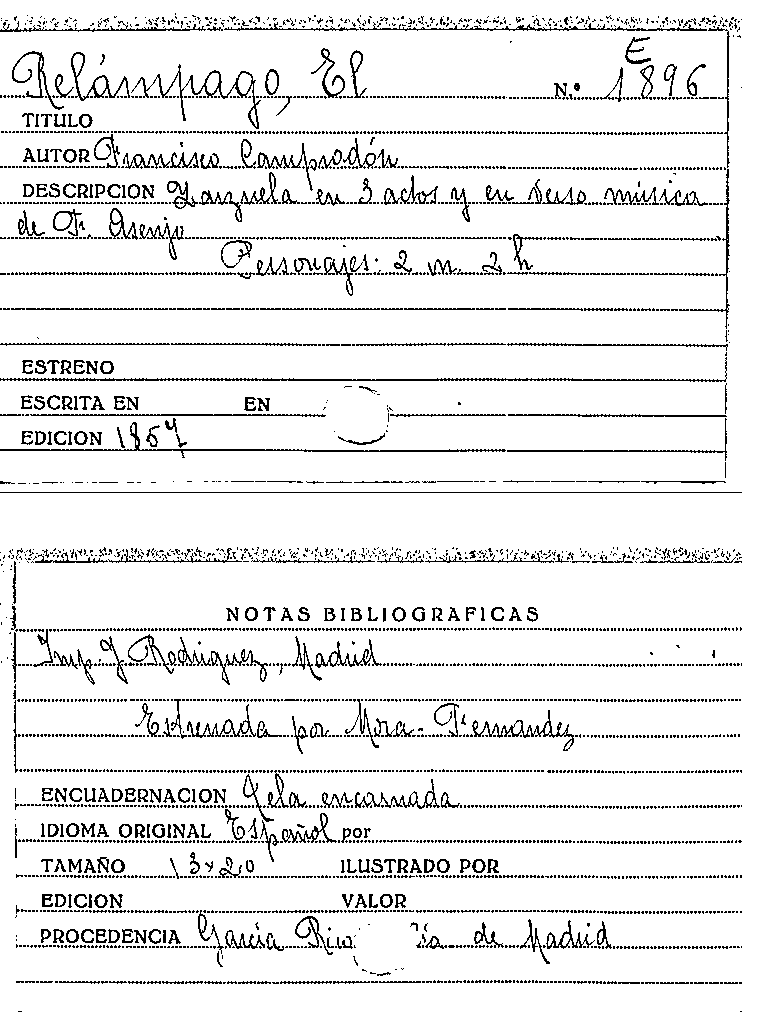 E
Relámpago, El N.º 1896
TITULO
AUTOR Francisco Camprodón
DESCRIPCION Zarzuela en 3 actos y en verso música
de F. Asenjo
Personajes: 2 m. 2 h
ESTRENO
ESCRITA EN EN
EDICION 1857
NOTAS BIBLIOGRAFICAS
Imp. J. Rodriguez, Madrid
Estrenada por Mora - Fernandez
ENCUADERNACION Tela encarnada
IDIOMA ORIGINAL Español por
TAMAÑO 13x20 ILUSTRADO POR
EDICION VALOR
PROCEDENCIA García Rico de Madrid